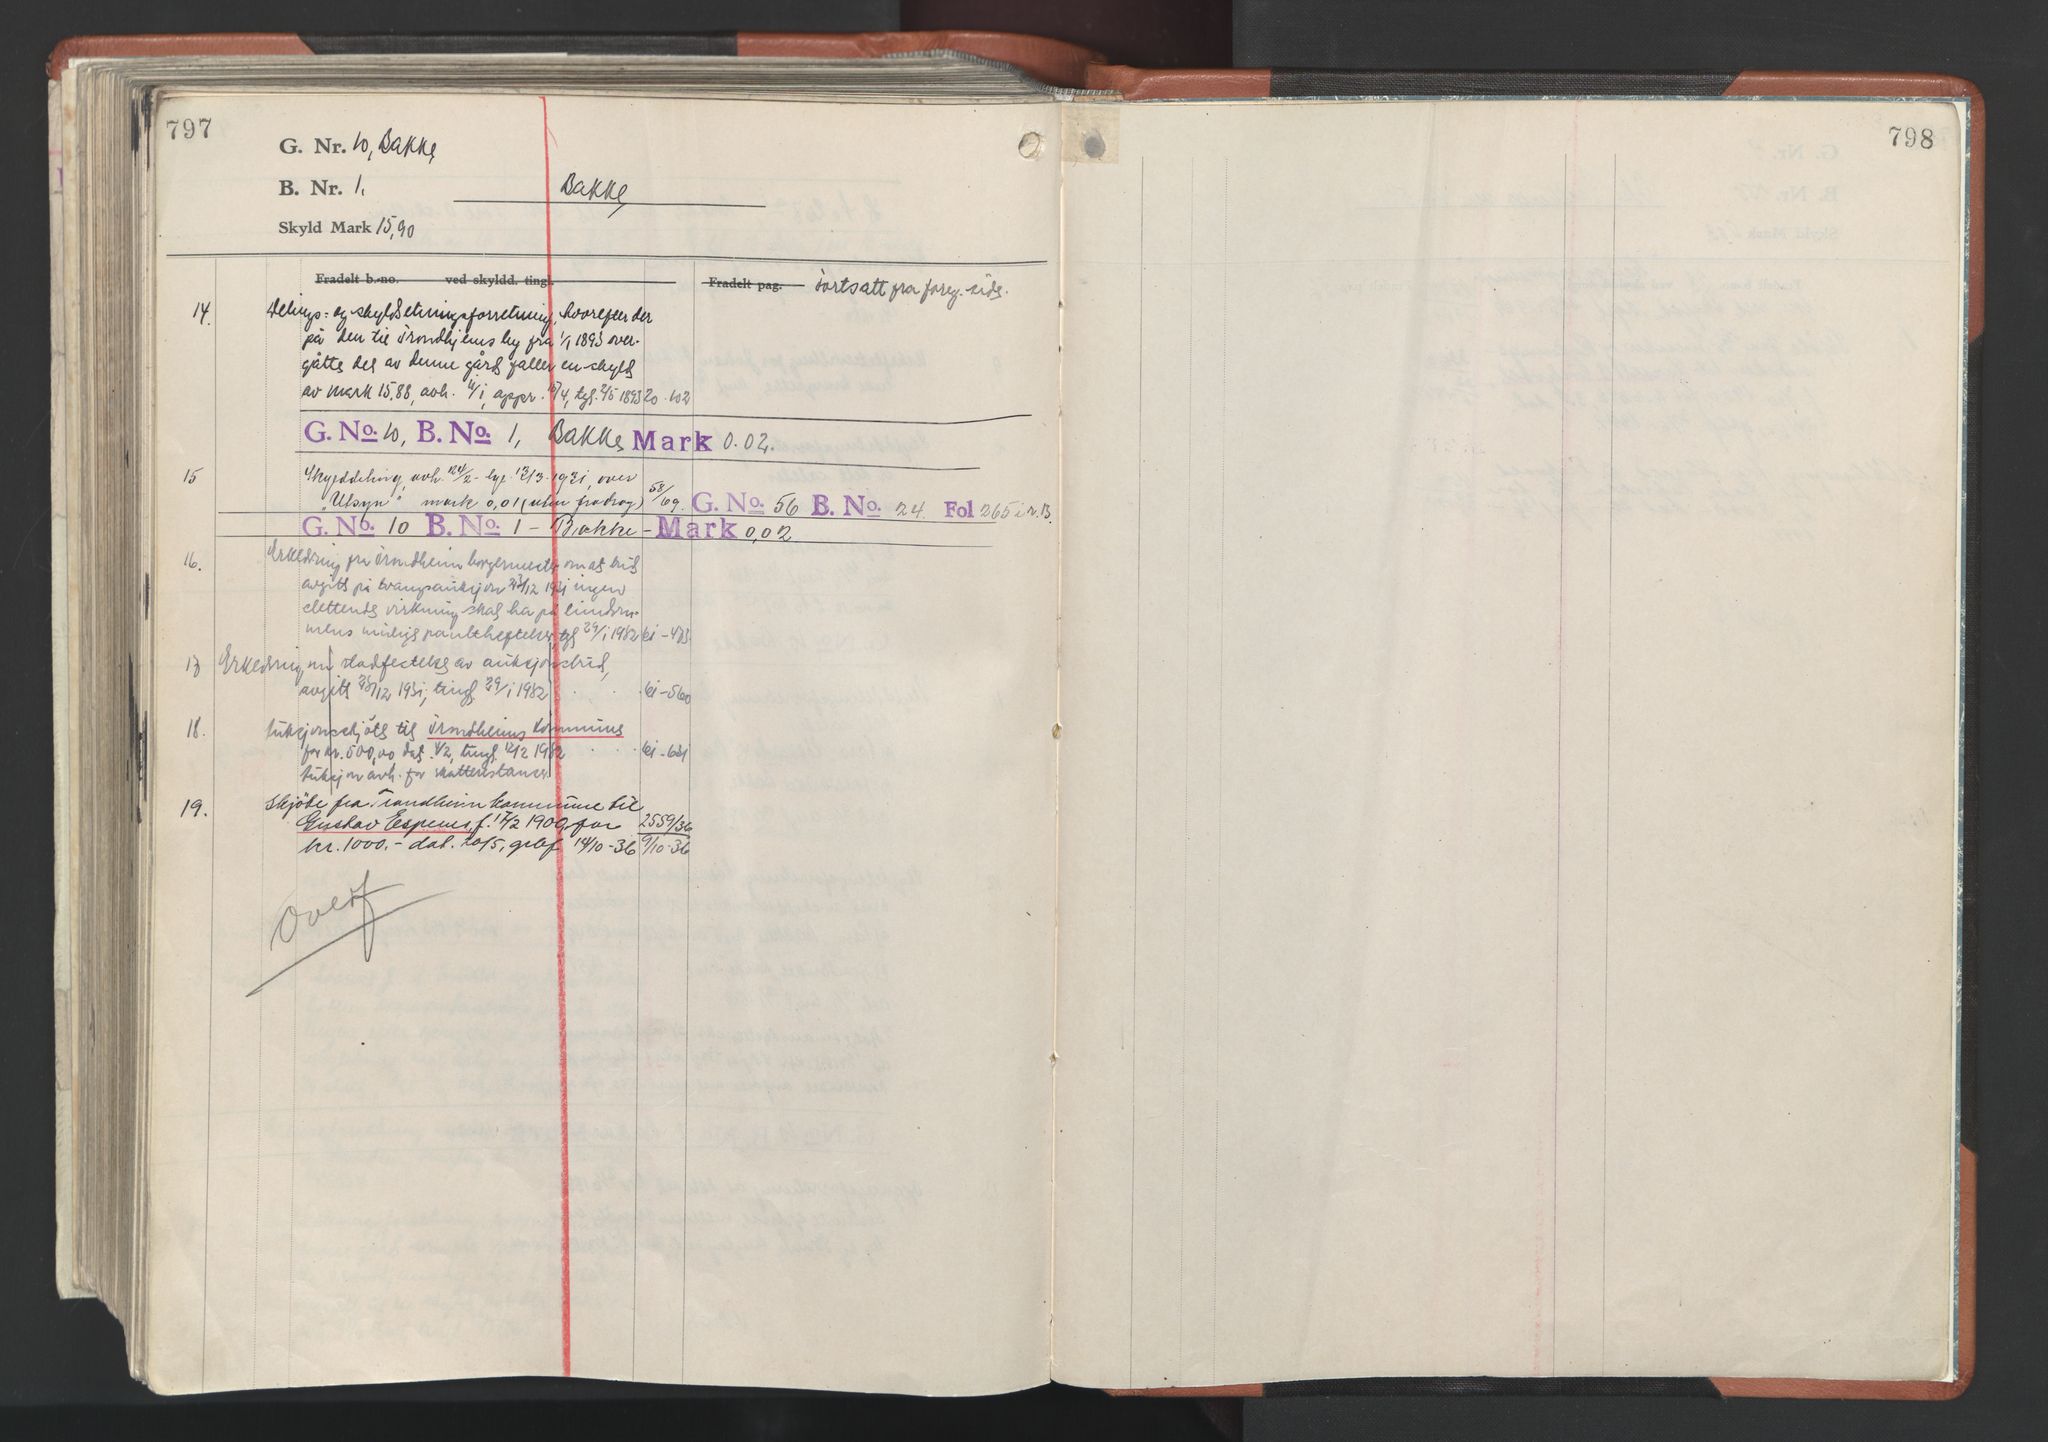 797
G. Nr. 10, Bakke
B. Nr. 1. Bakke
Skyld Mark 15,90
Fradelt b.-no. ved skyldd. tingl. Fradelt pag. Fortsatt fra foreg. side.
14. Delings- og skyldsetningsforretning, hvorefter der
på den til Trondhjems by fra 1/1 1893 over-
gåtte del av denne gård faller en skyld
av mark 15.88, avh. 11/1, appr. 15/4, tgl. 2/5 1893 20-102
G. No. 10, B. No. 1, Bakke Mark 0.02.
15 Skylddeling, avh. 24/2 - tgl. 12/3 1931, over
"Utsyn" mark 0,01 (uten fradrag) 58/69. G. No. 56 B. No. 24. Fol 265 i r. B.
G. No. 10 B. No. 1 - Bakke - Mark 0,02
16. Erklæring fra Trondheim borgermester om at bud
avgitt på tvangsauksjon 23/12 1931 ingen
slettende virkning skal ha på eiendom-
mens pantheftelser, tgl. 29/1 1932 61-483
17 Erklæring om stadfestelse av auksjonsbud,
avgitt 28/12 1931, tingl. 29/1 1932 61-560
18. Auksjonsskjøte til Trondheims kommune
for kr. 500,00 dat. 4/2, tingl. 12/2 1932 61-631
Auksjon avh. for skatterestanser.
19. Skjøte fra Trondheim kommune til
Gustav Espenes f. 17/2 1900, for 2559/36
kr. 1000.- dat. 20/5, 14/10-36 9/10-36
Overf
798